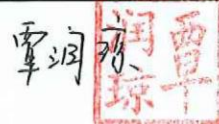 覃润琼
覃润琼